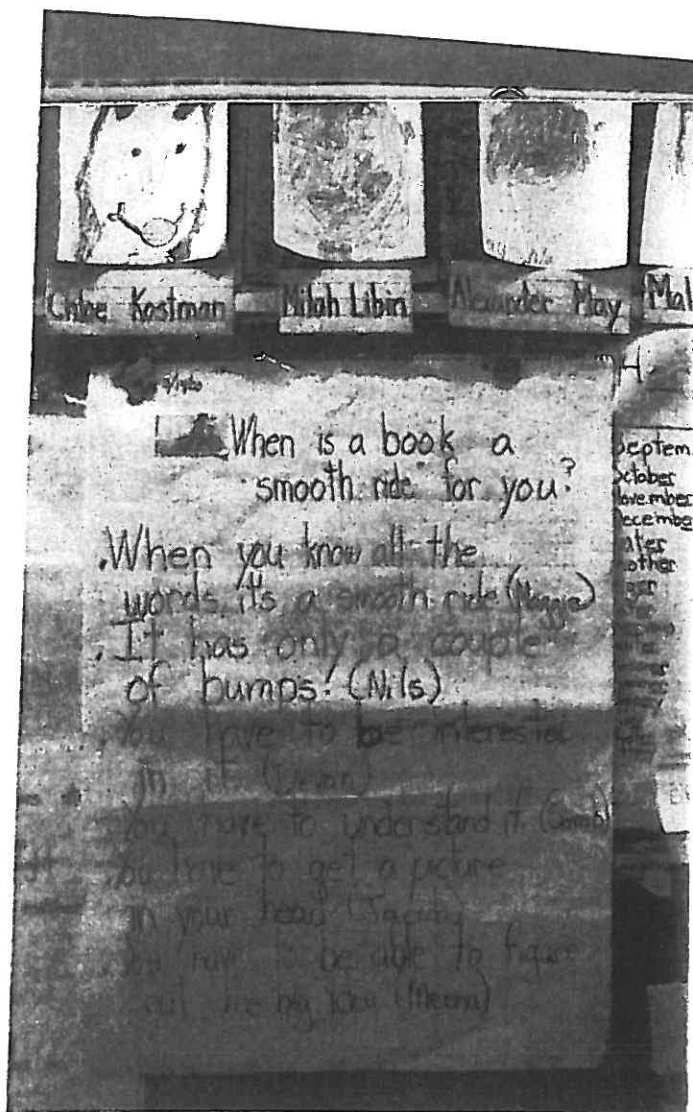 Chloe Kostman
Milah Libin
Alexander May
Mal
When is a book a
"smooth ride" for you?
. When you know all the
words, it's a smooth ride (Maggie)
. It has only a couple
of bumps! (Nils)
. You have to be interested
in it. (Devon)
. You have to understand it.
. You have to get a picture
in your head (Jacob)
. You have to be able to figure
out the big idea (Meena)
Septem
October
November
December